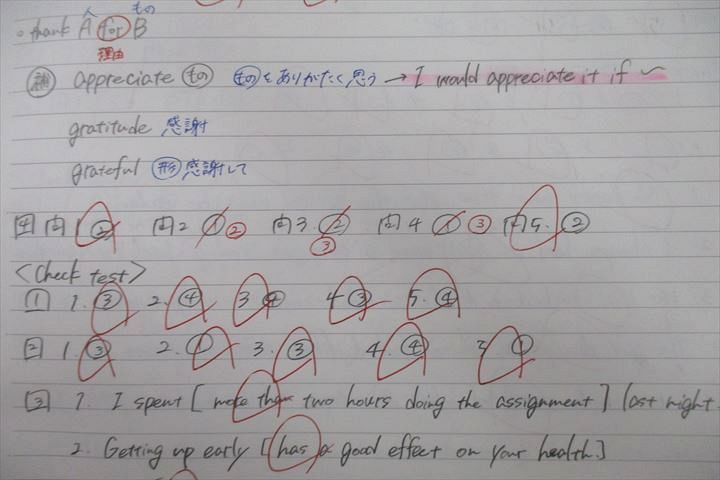 人 もの
○ thank A for B
理由
㊝ appreciate もの ものをありがたく思う → I would appreciate it if 〜
gratitude 感謝
grateful 形 感謝して
4 問1 ② 問2 ① ② 問3. ② ③ 問4 ① ③ 問5. ②
<Check test>
1 1. ③ 2. ④ 3 ④ 4 ③ 5. ④
2 1. ③ 2. ① 3. ③ 4. ④ 5 ①
3 1. I spent [ more than two hours doing the assignment ] last night.
2. Getting up early [ has a good effect on your health. ]